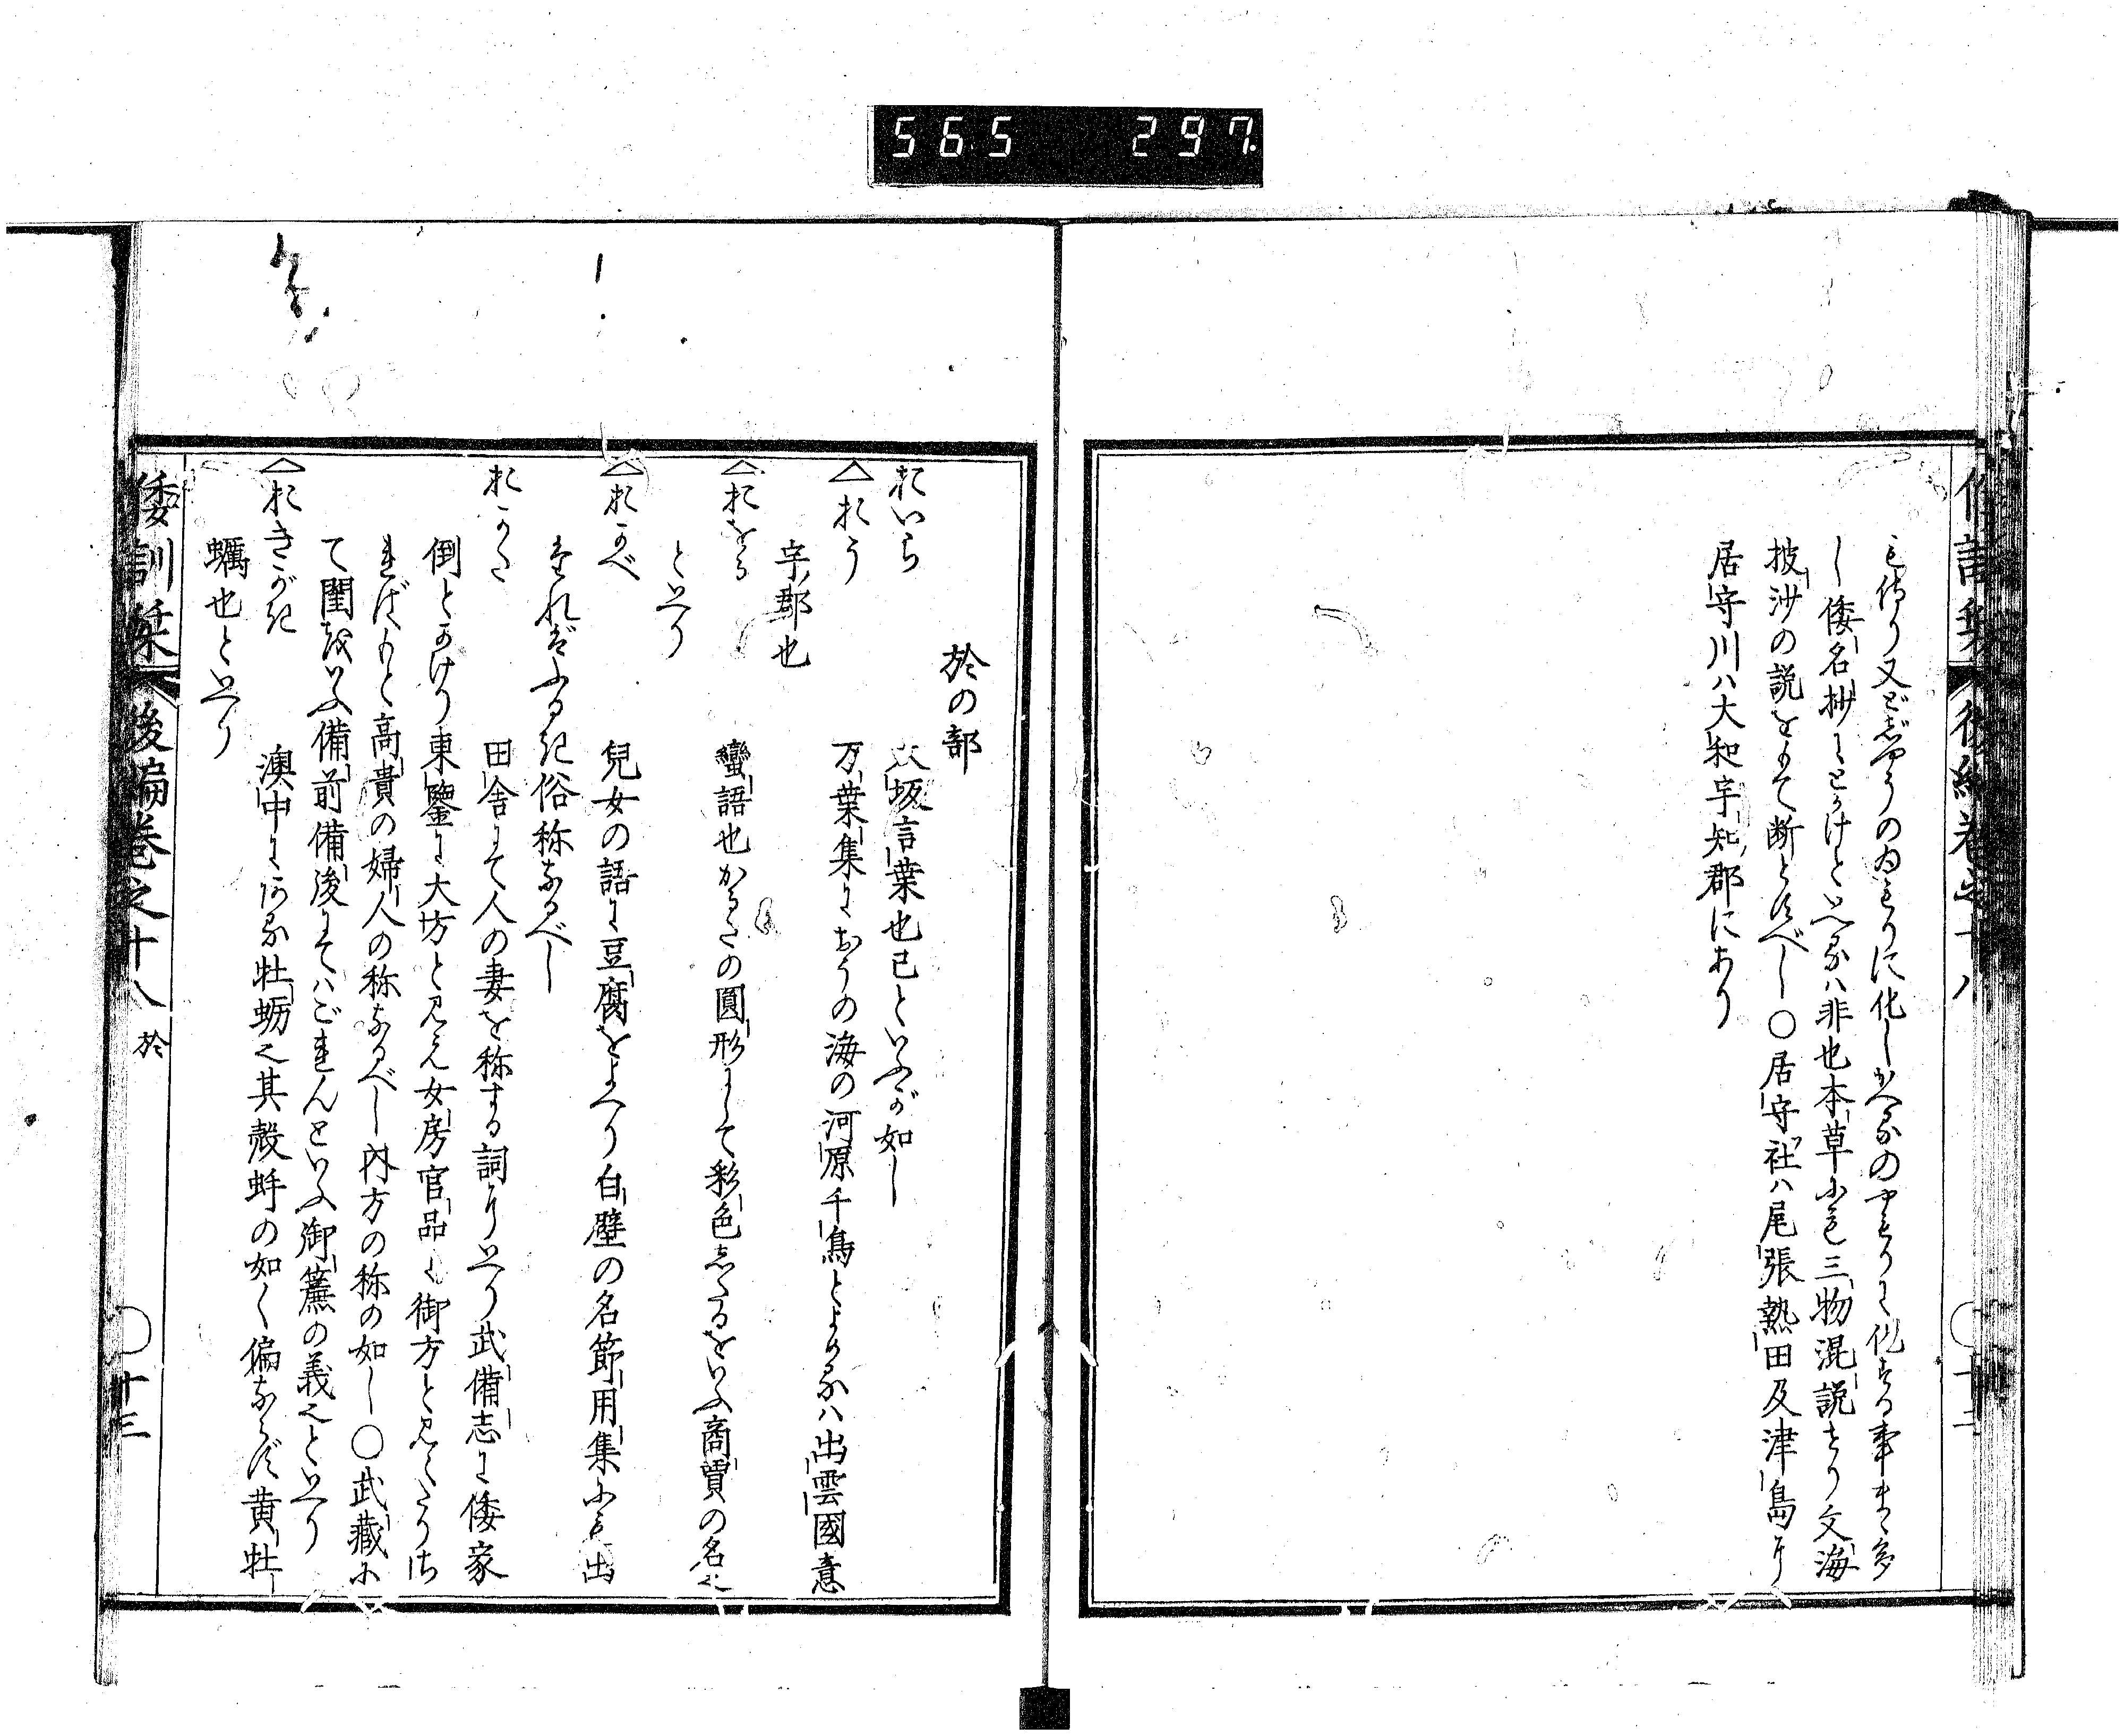 565 297.
も侍り又どぢやうのゐもりに化しかへるのやもりに化する事まゝ多
し倭名抄にとかけといへるハ非也本草にも三物混説せり文海
披沙の説をもて断とすべし〇居守社ハ尾張熱田及津島に
居守川ハ大和宇智郡にあり
於の部
おいら
大坂言葉也已といふが如し
△おう
万葉集におうの海の河原千鳥とよめるハ出雲國意
宇郡也
△おをる
蠻語也かるたの圓形にして彩色したるをいふ商賈の名也
といへり
△おかべ
兒女の語に豆腐をよへり白壁の名節用集にも出
たれバふるき俗称なるべし
おかた
田舎にて人の妻を称する詞にいへり武備志に倭家
倒とかけり東鑒に大方と見え女房官品に御方と見えたりされ
ばもと高貴の婦人の称なるべし内方の称の如し〇武藏に
て閨をいふ備前備後にてハごれんといふ御簾の義也といへり
△おきがき
澳中にある牡蛎也其殻蚌の如く偏ならず黄牡
蠣也といへり
倭訓栞 後編巻之十八 於 〇十三